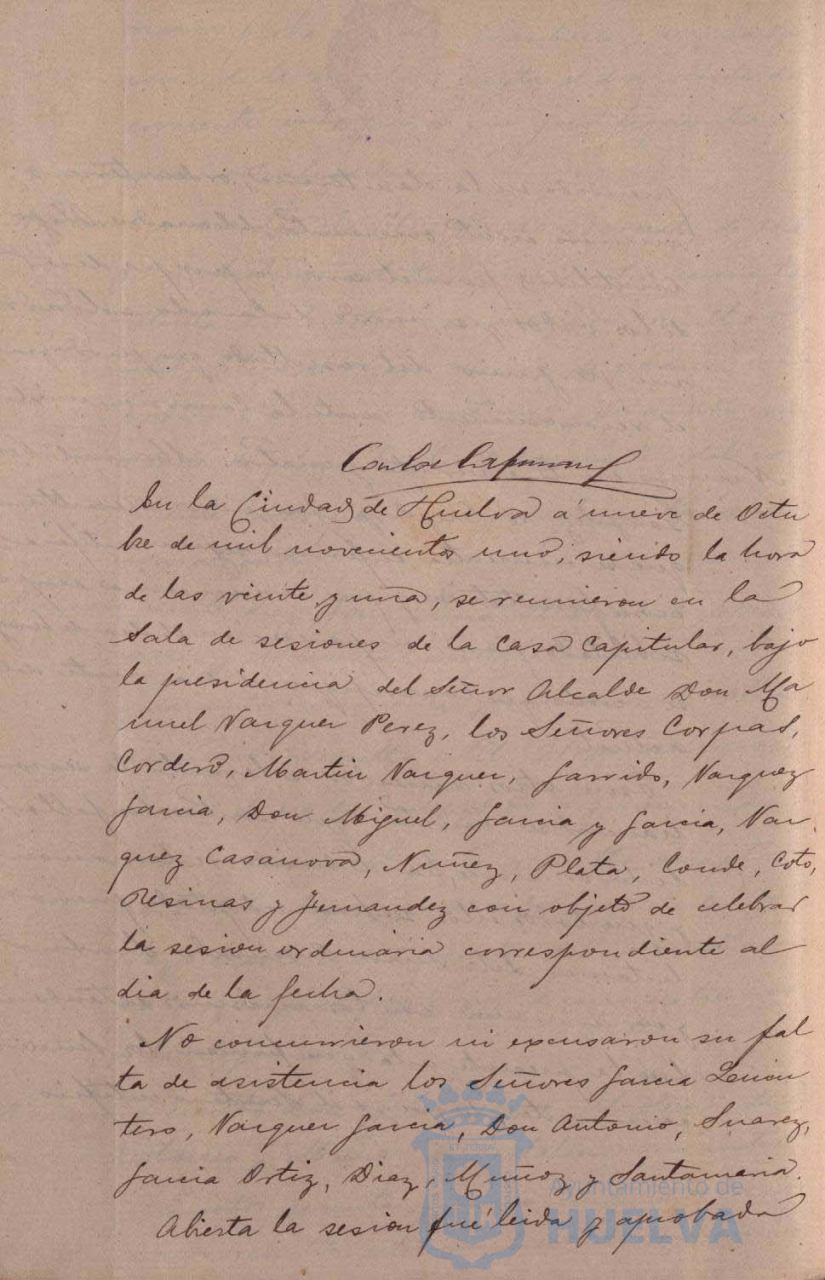 En la Ciudad de Huelva á nueve de Octu
bre de mil novecientos uno, siendo la hora
de las veinte y una, se reunieron en la
Sala de sesiones de la Casa Capitular, bajo
la presidencia del Señor Alcalde Don Ma
nuel Vazquez Perez, los Señores Corpas,
Cordero, Martin Vazquez, Garrido, Vazquez
Garcia, Don Miguel, Garcia y Garcia, Vaz
quez Casanova, Nuñez, Plata, Conde, Coto,
Resinas y Fernandez con objeto de celebrar
la sesion ordinaria correspondiente al
dia de la fecha.
No concurrieron ni excusaron su fal
ta de asistencia los Señores Garcia
Vazquez Garcia, Don Antonio, Suarez,
Garcia Ortiz, Diaz, Muñoz y Santamaria.
Abierta la sesion fué leida y aprobada
Ayuntamiento de
HUELVA